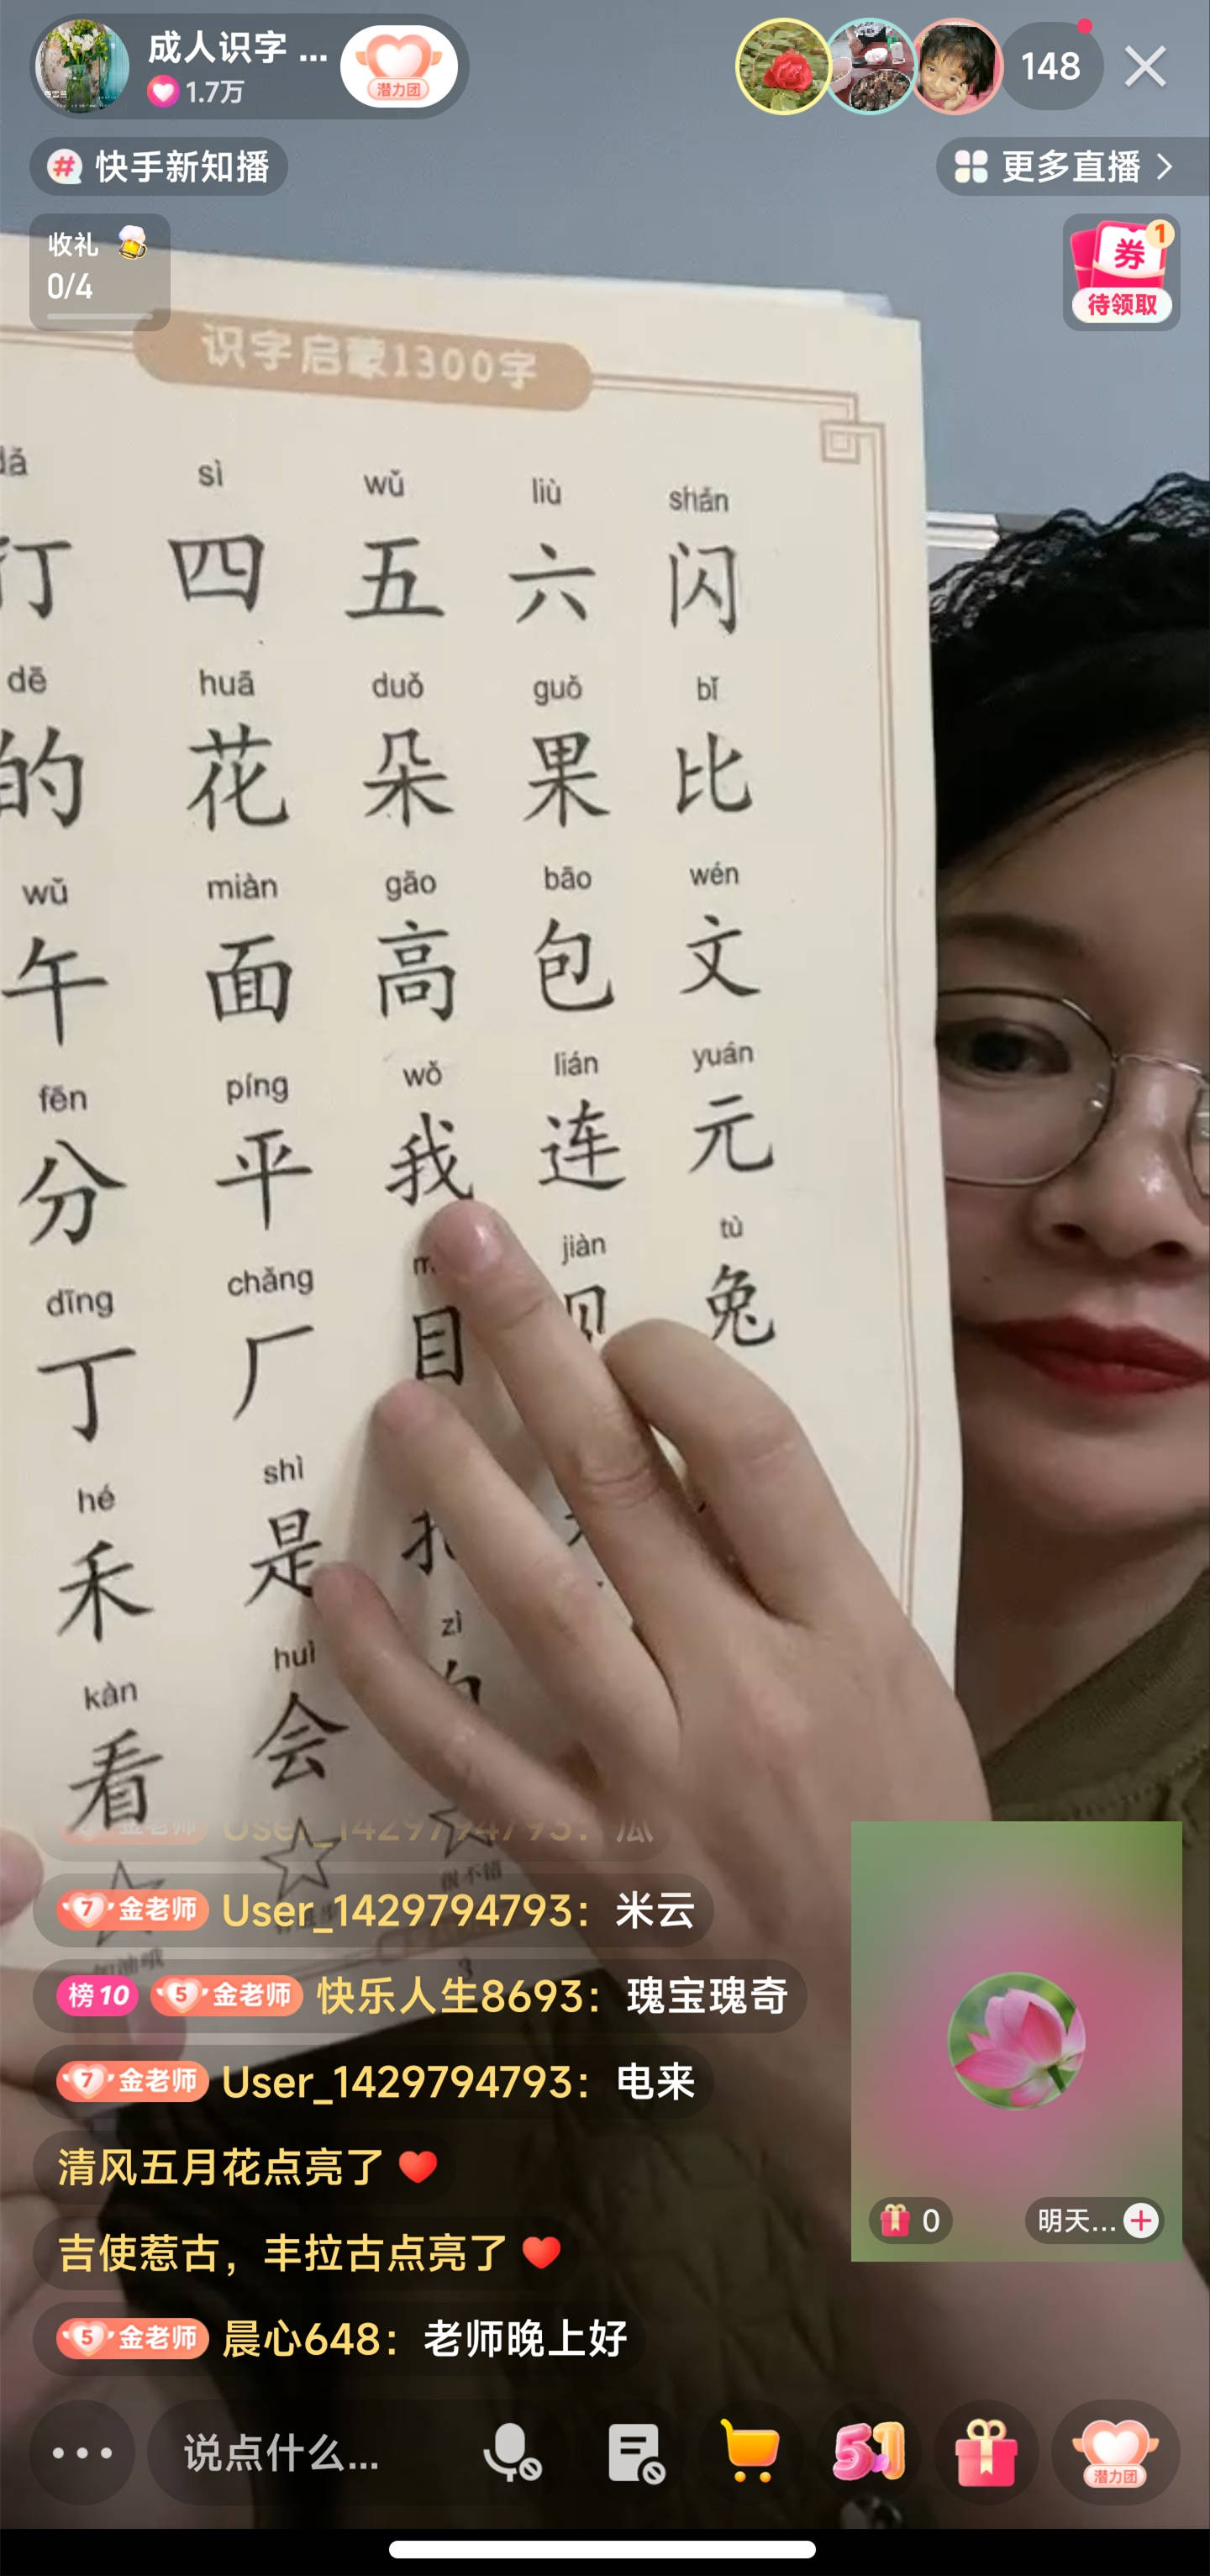 成人识字 ...
1.7万
潜力团
148
快手新知播
更多直播
收礼
0/4
券
1
待领取
识字启蒙1300字
dǎ sì wǔ liù shǎn
打 四 五 六 闪
dē huā duǒ guǒ bǐ
的 花 朵 果 比
wǔ miàn gāo bāo wén
午 面 高 包 文
fēn píng wǒ lián yuán
分 平 我 连 元
dīng chǎng jiàn tù
丁 厂 目 见 兔
hé shì
禾 是
kàn huì zì
看 会
加油哦 很不错
3
金老师 User_1429794793：瓜
7 金老师 User_1429794793：米云
榜10 5 金老师 快乐人生8693：瑰宝瑰奇
7 金老师 User_1429794793：电来
清风五月花点亮了
吉使惹古，丰拉古点亮了
5 金老师 晨心648：老师晚上好
0
明天...
说点什么...
51
潜力团